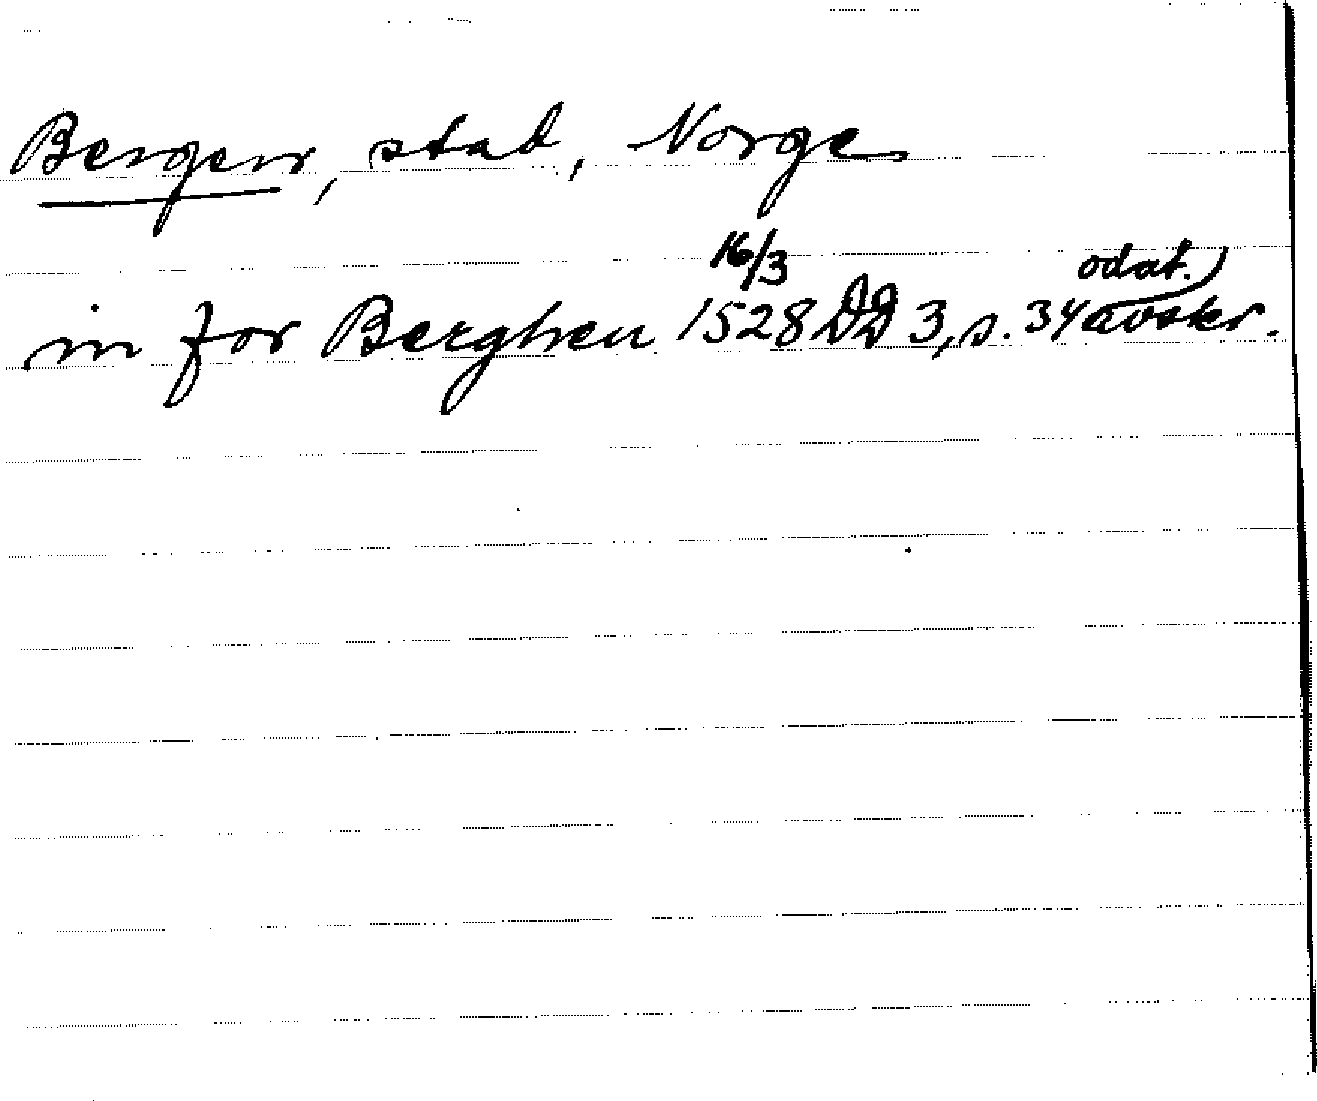 Bergen, stad, Norge
in for Berghen 16/3 1528 DD 3, s. 34 odat. avskr.